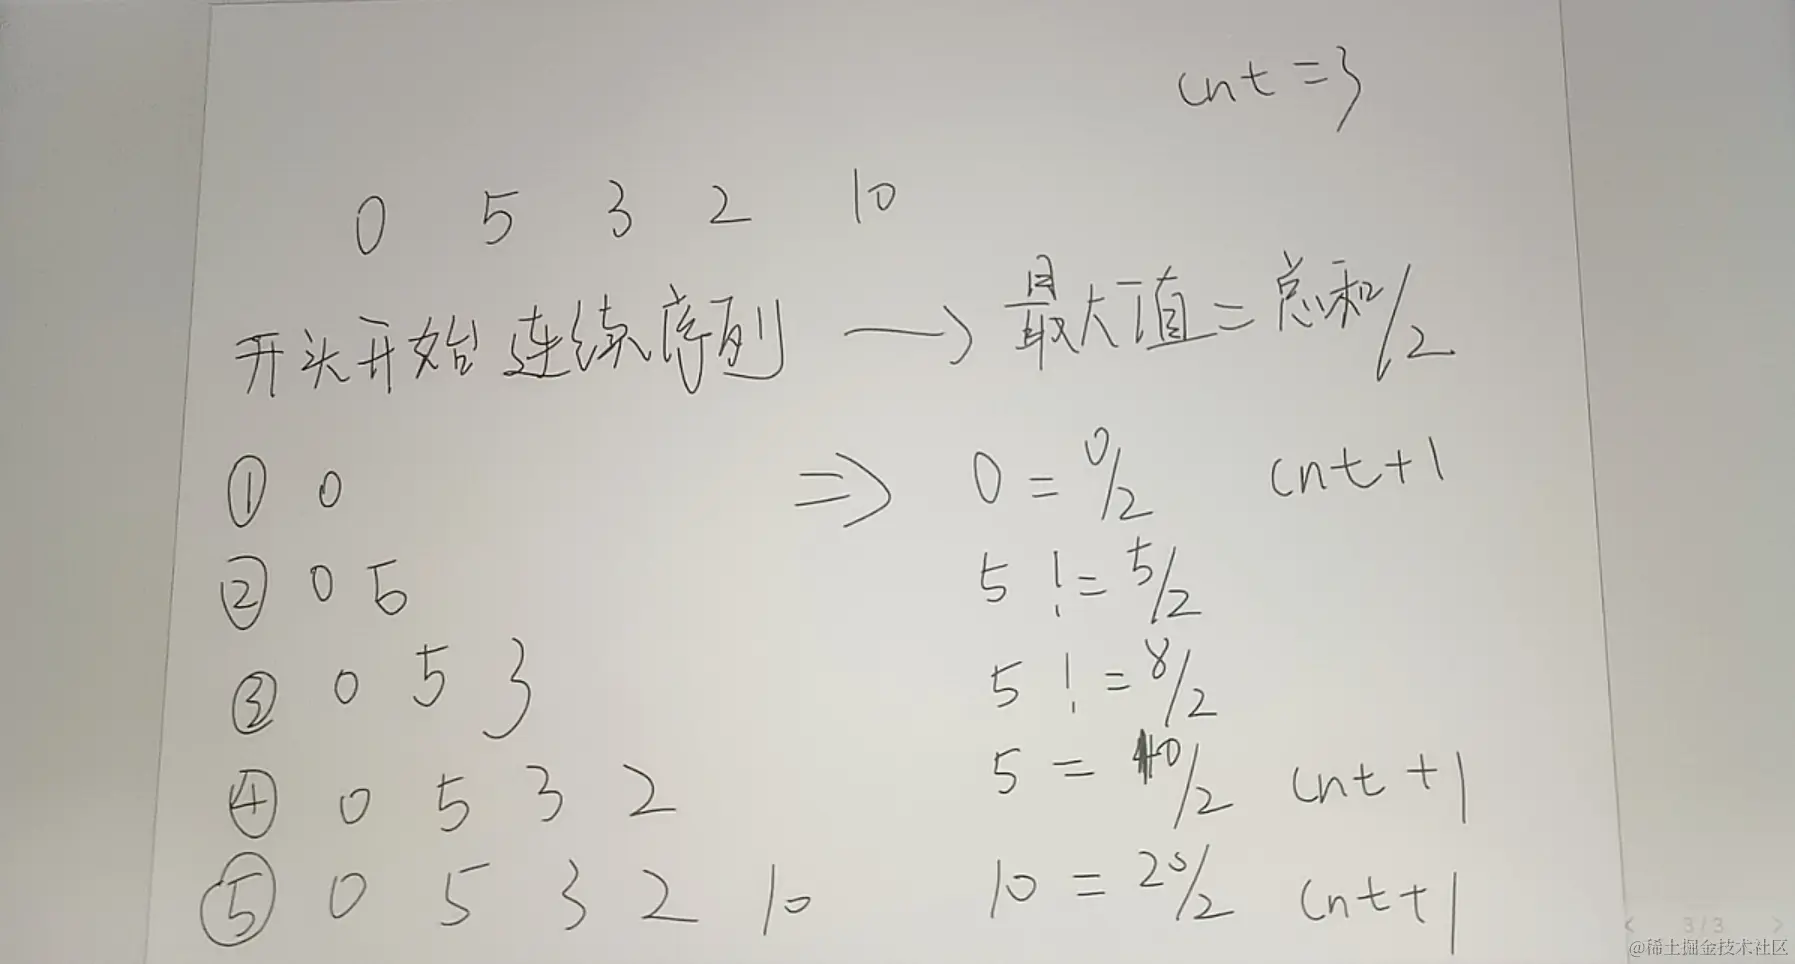 cnt=3
0 5 3 2 10
开头开始连续序列 → 最大值=总和/2
① 0 ⇒ 0=0/2 cnt+1
② 0 5 5!=5/2
③ 0 5 3 5!=8/2
④ 0 5 3 2 5=10/2 cnt+1
⑤ 0 5 3 2 10 10=20/2 cnt+1
< 3/3 >
@稀土掘金技术社区